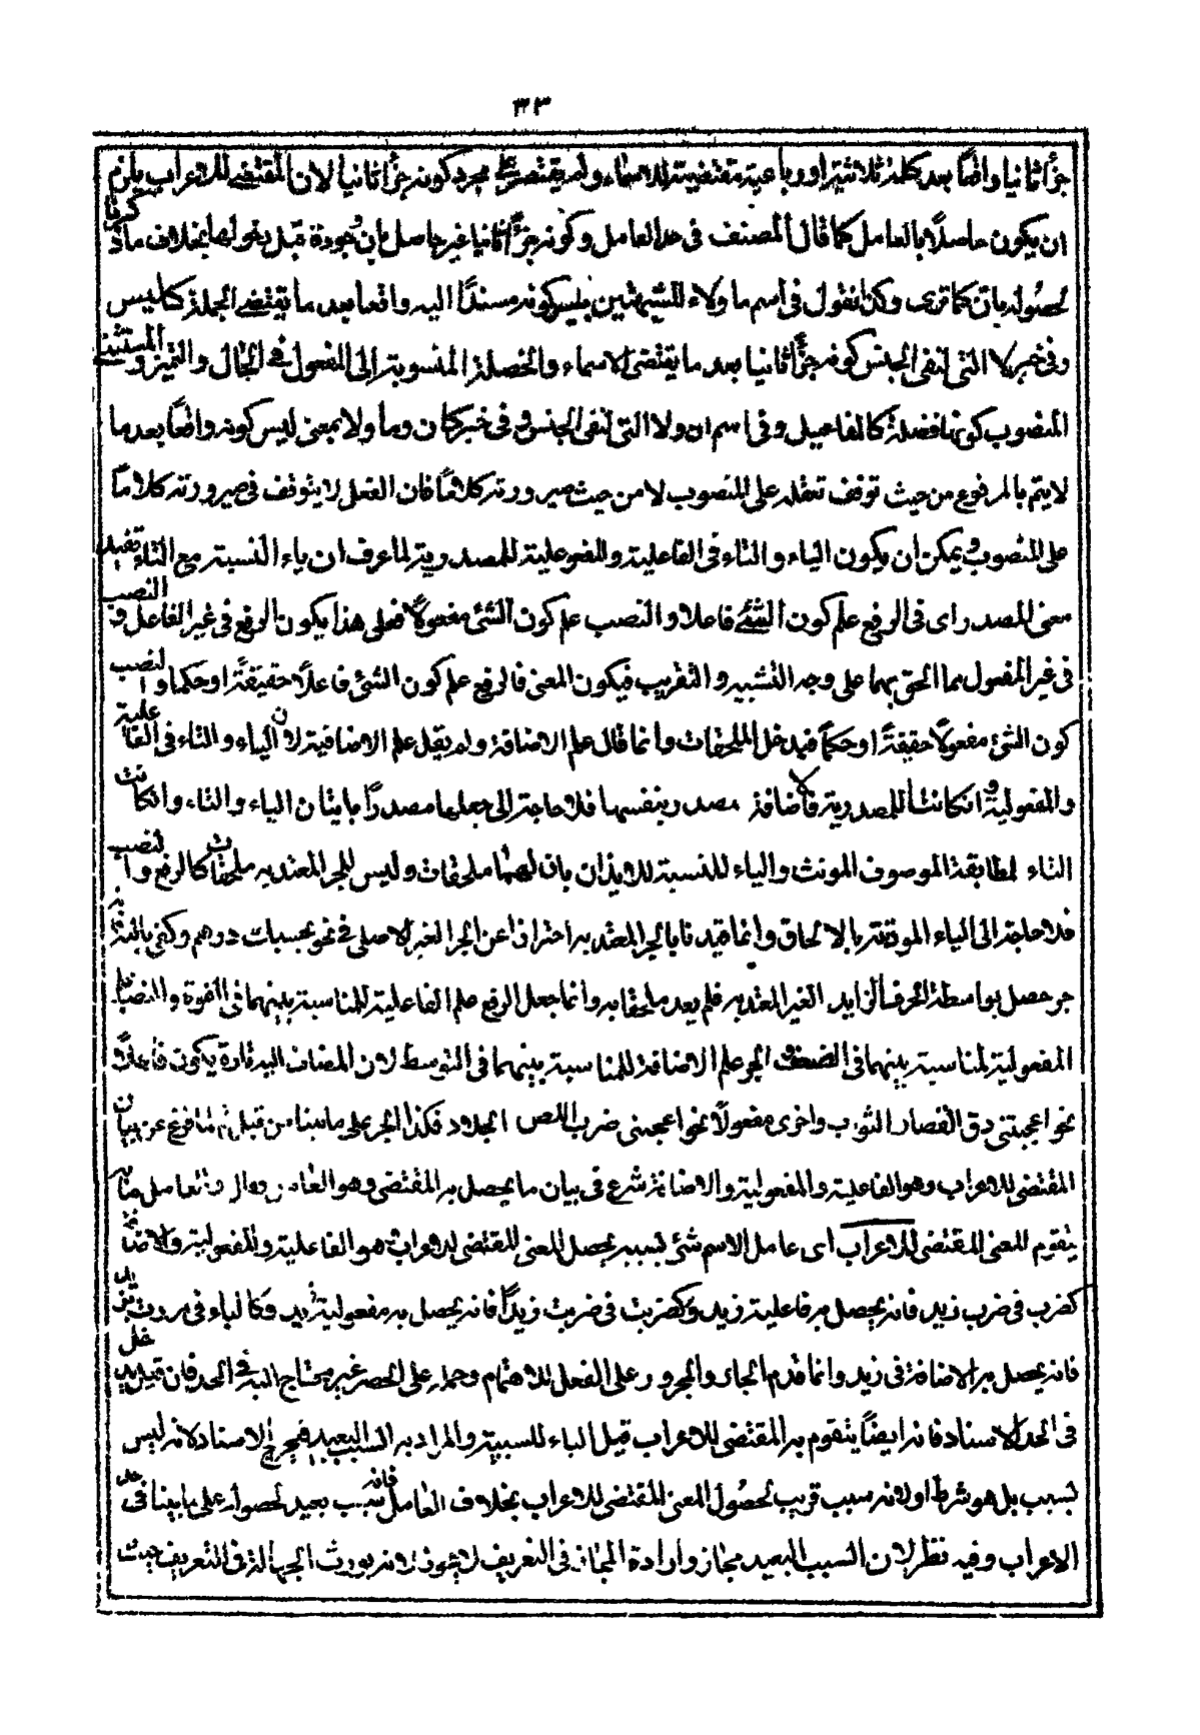 ٣٣
جزأ ثانيا واقعاً بعد كلمة ثلاثية او رباعية مقتضية للاسماء ولم يقتصر على مجرد كونه جزأ ثانيا لان المقتضى للاعراب يلزم
ان يكون حاصلاً بالعامل كما قال المصنف فى حد العامل وكونه جزأ ثانيا غير حاصل بان وجودة قبل دخولها بخلاف ما ذكرنا
لحصوله بان كما ترى وكذا نقول فى اسم ما ولاء المشبهتين بليس كونه مسنداً اليه واقعا بعد ما يقتضى الجملة كليس
وفى خبر لا التى لنفى الجنس كونه جزأ ثانيا بعد ما يقتضى الاسماء والخصلة المنسوبة الى المفعول فى الحال والتميز والمستثنى
المنصوب كونها فضلة كالمفاعيل وفى اسم ان ولا التى لنفى الجنس وفى خبر كان وما ولا بمعنى ليس كونه واقعاً بعد ما
لا يتم بالمرفوع من حيث توقف تعقله على المنصوب لا من حيث صيرورته كلاماً فان الفعل لا يتوقف فى صيرورته كلاماً
على المنصوب ويمكن ان يكون الياء والتاء فى الفاعلية والمفعولية للمصدرية لما عرف ان ياء النسبة مع التاء تفيد
معنى المصدر اى فى الرفع علم كون الشئ فاعلا والنصب علم كون الشئ مفعولاً فعلى هذا يكون الرفع فى غير الفاعل والنصب
فى غير المفعول مما الحق بهما على وجه التشبيه والتقريب فيكون المعنى فالرفع علم كون الشئ فاعلاً حقيقةً او حكما والنصب
كون الشئ مفعولاً حقيقةً او حكماً فيدخل الملحقات وانما قال علم الاضافة ولم يقل علم الاضافية لان الياء والتاء فى الفاعلية
والمفعولية ان كانتا للمصدرية فالاضافة مصدر بنفسها فلا حاجة الى جعلها مصدراً باتيان الياء والتاء وان كانت
التاء لمطابقة الموصوف المونث والياء للنسبة للايذان بان لهما ملحقات وليس للجر المعتد به ملحقات كالرفع والنصب
فلا حاجة الى الياء الموذنة بالالحاق وانما قيدنا بالجر المعتد به احترازا عن الجر الغير الاصلى فى نحو بحسبك درهم وكفى بالله فانه
جر حصل بواسطة الحرف الزايد الغير المعتد به فلم يعد ملحقا به وانما جعل الرفع علم الفاعلية للمناسبة بينهما فى القوة والنصب علم
المفعولية لمناسبة بينهما فى الضعف والجر علم الاضافة للمناسبة بينهما فى التوسط لان المضاف اليه تارة يكون فاعلاً
نحو اعجبنى دق القصار الثوب واخرى مفعولاً نحو اعجبنى ضرب اللص الجلاد فكذا الجر على ما بينا من قبل ثم لما فرغ عن بيان
المقتضى للاعراب وهو الفاعلية والمفعولية والاضافة شرع فى بيان ما يحصل به المقتضى وهو العامل وقال والعامل ما به
يتقوم المعنى المقتضى للاعراب اى عامل الاسم شئ بسببه يحصل المعنى المقتضى للاعراب هو الفاعلية والمفعولية والاضافة
كضرب فى ضرب زيد فانه يحصل به فاعلية زيد وكضربت فى ضربت زيداً فانه يحصل به مفعولية زيد وكالباء فى مررت بزيد
فانه يحصل به الاضافة فى زيد وانما قدم الجار والمجرور على الفعل للاهتمام وحمله على الحصر غير محتاج اليه فى الحد فان قيل يدخل
فى الحد الاسناد فانه ايضاً يتقوم به المقتضى للاعراب قيل الباء للسببية والمراد به السبب البعيد فيخرج الاسناد لانه ليس
بسبب بل هو شرط او لانه سبب قريب لحصول المعنى المقتضى للاعراب بخلاف العامل فانه سبب بعيد لحصوله على ما بينا فى حد
الاعراب وفيه نظر لان السبب البعيد مجاز وارادة المجاز فى التعريف لا يجوز لانه يورث الجهالة فى التعريف حيث